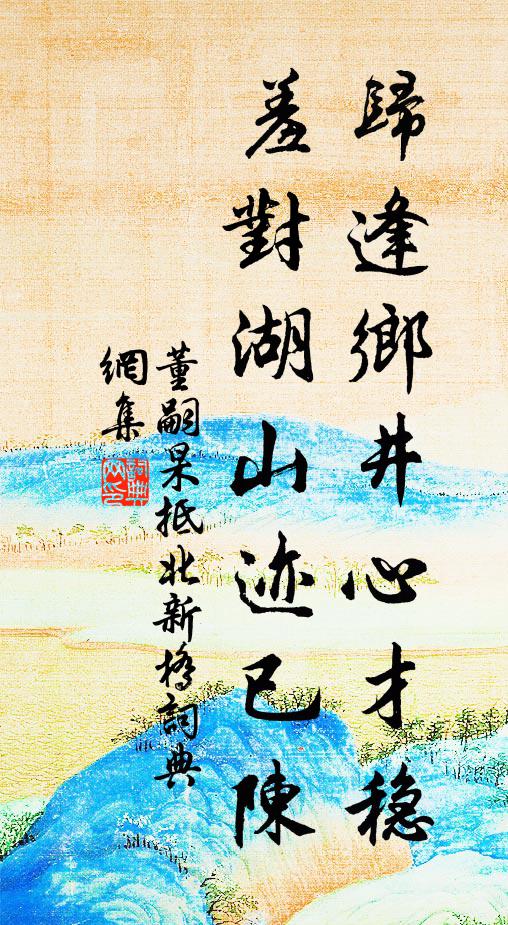 歸逢鄉井心才穩
羞對湖山迹已陳
董嗣杲抵北新橋詞典
網集
詞典
网印